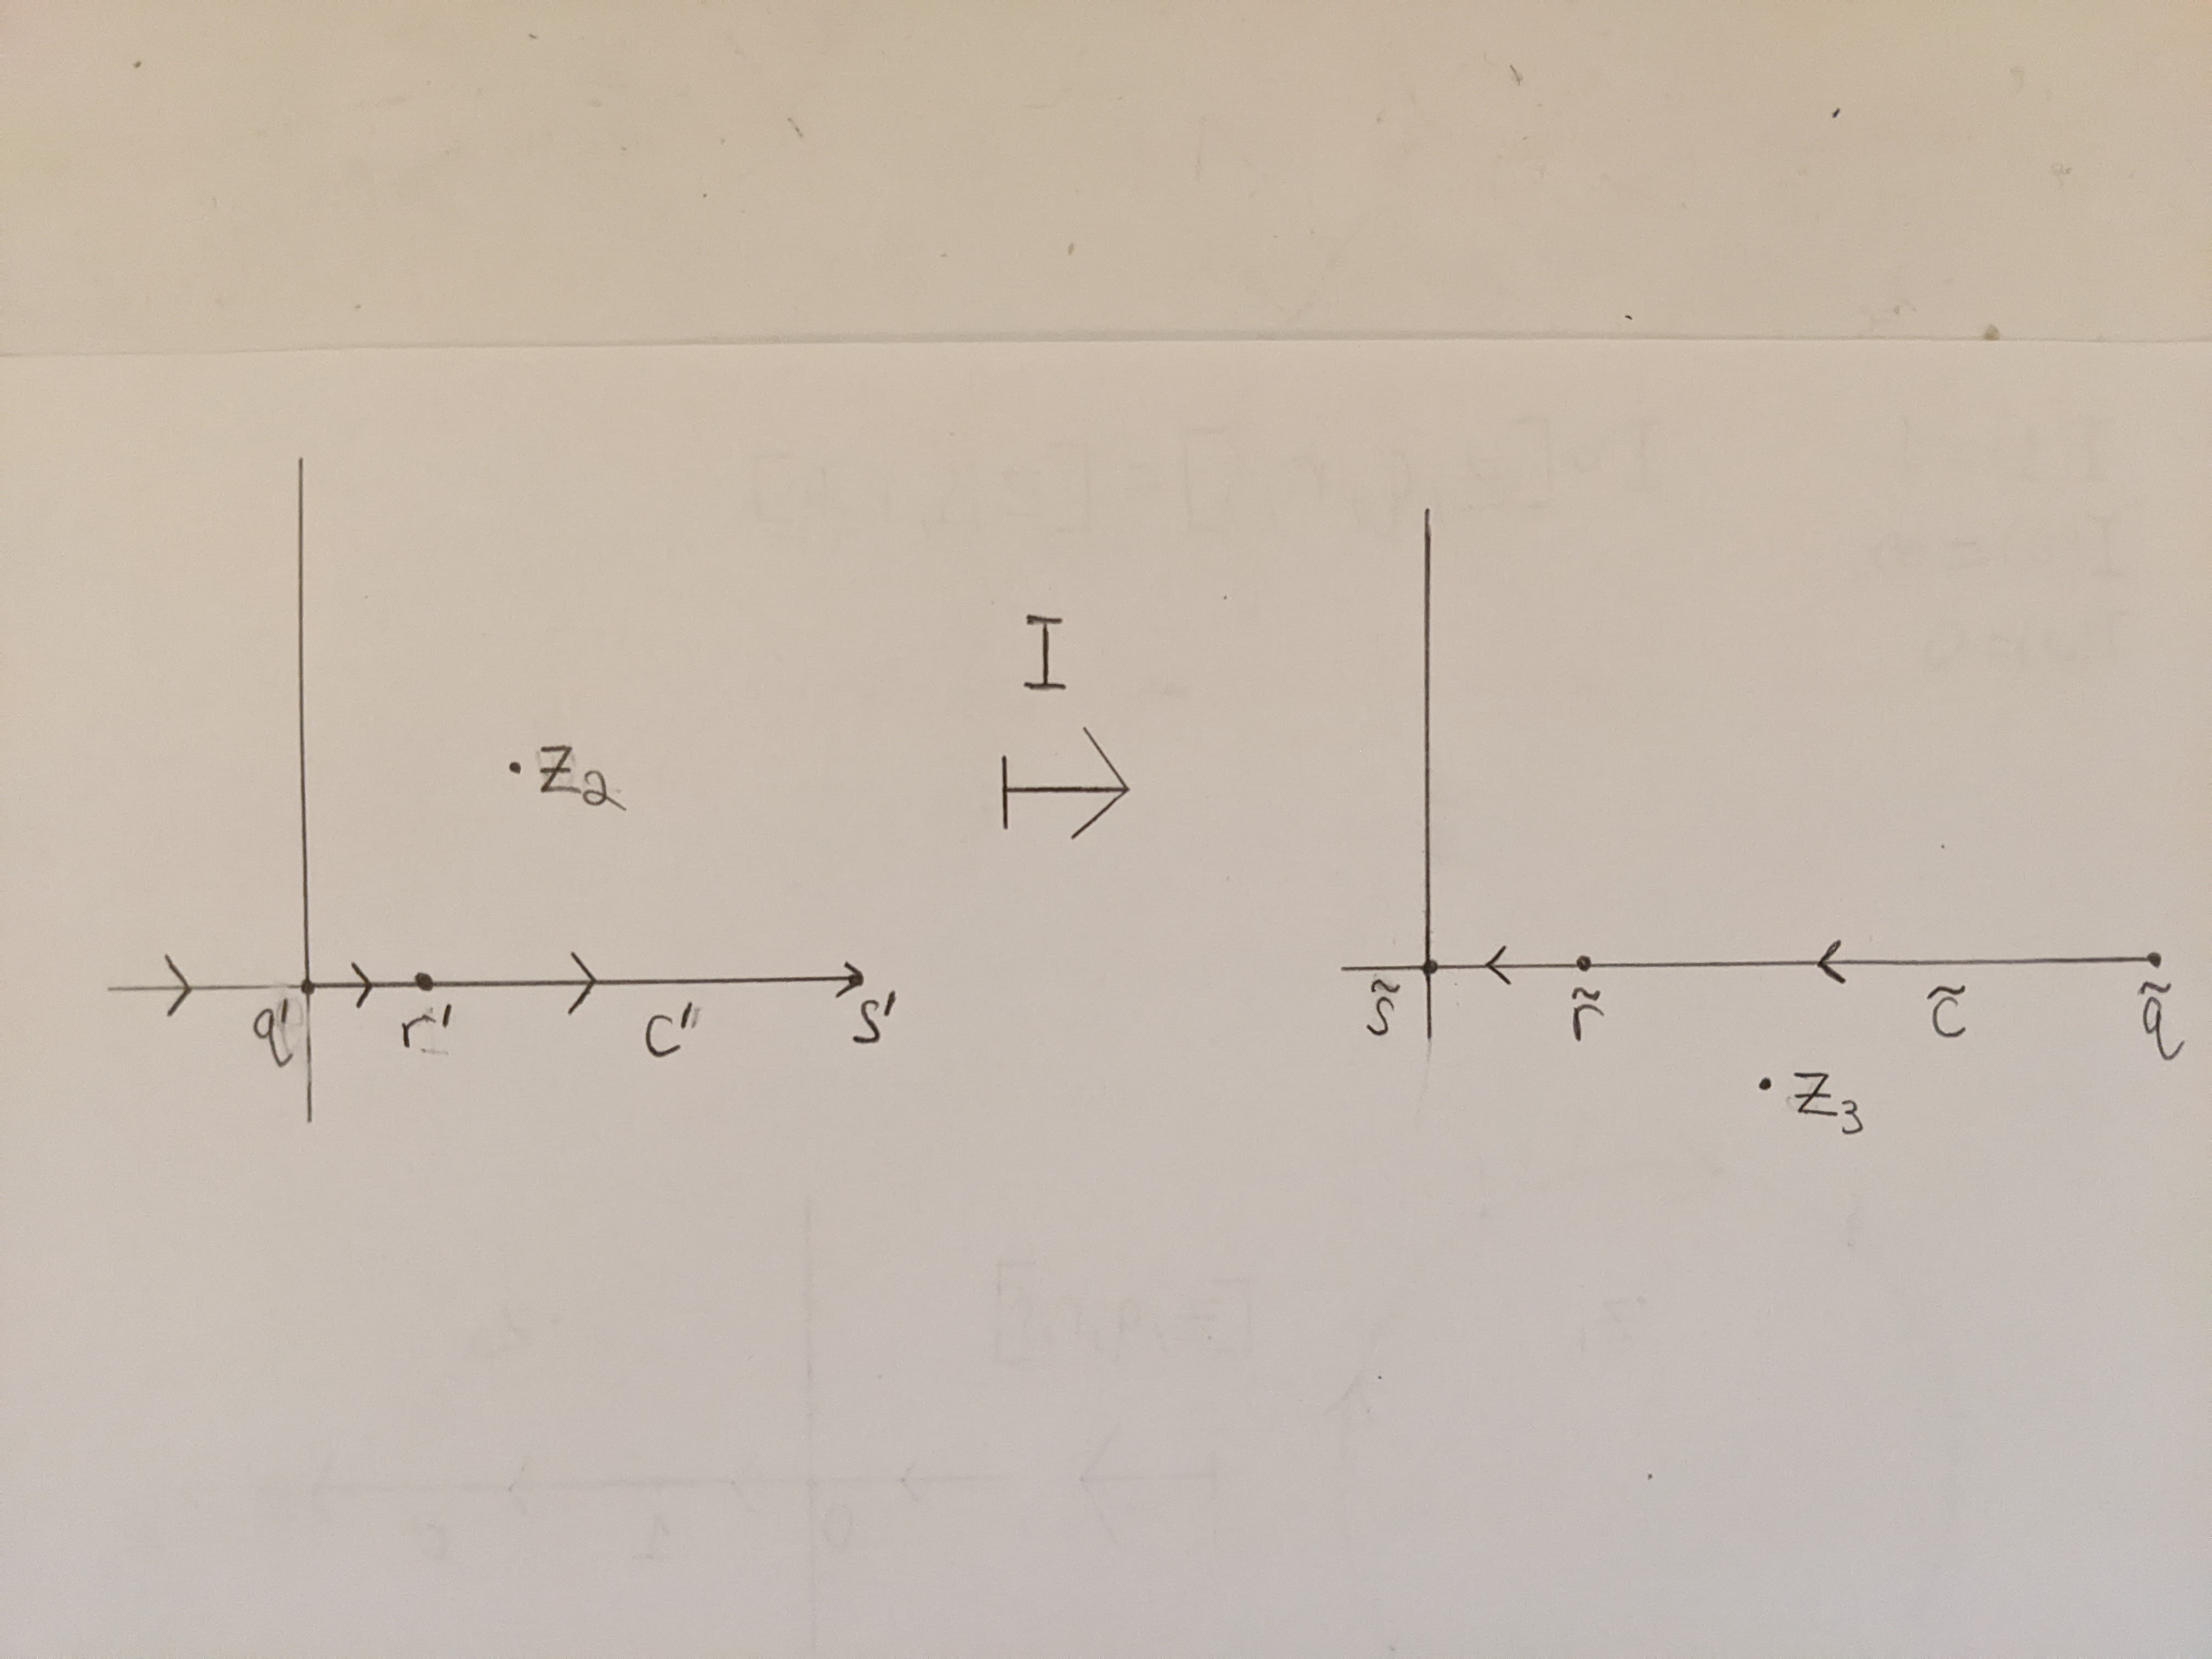 I
z₂
q' r' c' s'
s̃ r̃ c̃ q̃
z₃